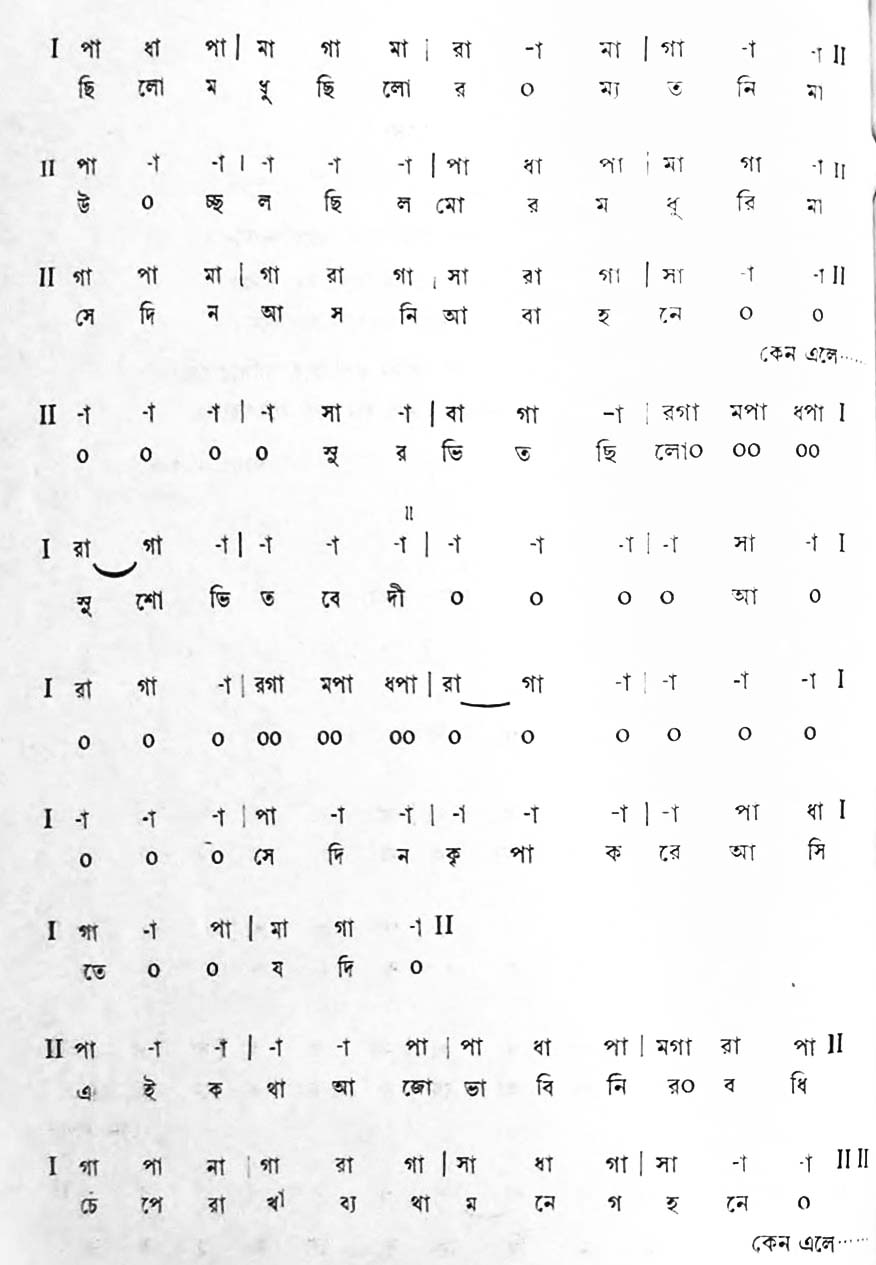 I পা ধা পা | মা গা মা | রা -া মা | গা -া -া II
ছি লো ম ধু ছি লো র ০ ম্য ত নি মা
II পা -া -া | -া -া -া | পা ধা পা | মা গা -া II
উ ০ চ্ছ ল ছি ল মো র ম ধু রি মা
II গা পা মা | গা রা গা | সা রা গা | সা -া -া II
সে দি ন আ স নি আ বা হ নে ০ ০
কেন এলে.....
II -া -া -া | -া সা -া | বা গা -া | রগা মপা ধপা I
০ ০ ০ ০ সু র ভি ত ছি লো০ ০০ ০০
II
I রা গা -া | -া -া -া | -া -া -া | -া সা -া I
সু শো ভি ত বে দী ০ ০ ০ ০ আ ০
I রা গা -া | রগা মপা ধপা | রা গা -া | -া -া -া I
০ ০ ০ ০০ ০০ ০০ ০ ০ ০ ০ ০ ০
I -া -া -া | পা -া -া | -া -া -া | -া পা ধা I
০ ০ ০ সে দি ন কৃ পা ক রে আ সি
I গা -া পা | মা গা -া II
তে ০ ০ য দি ০
II পা -া -া | -া -া পা | পা ধা পা | মগা রা পা II
এ ই ক থা আ জো ভা বি নি র০ ব ধি
I গা পা না | গা রা গা | সা ধা গা | সা -া -া II II
চে পে রা খাঁ ব্য থা ম নে গ হ নে ০
কেন এলে......